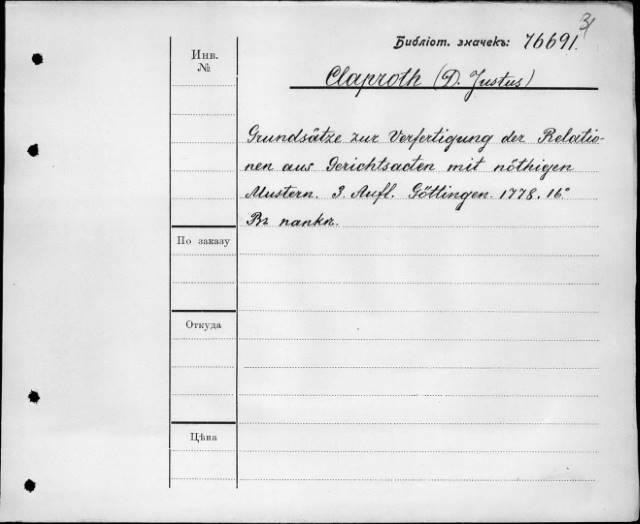 3
Библіот. значекъ: 76691.
Инв.
№
Claproth (D. Justus)
Grundsätze zur Verfertigung der Relatio-
nen aus Gerichtsacten mit nöthigen
Mustern. 3. Aufl. Göttingen. 1778. 16°
Въ папкѣ.
По заказу
Откуда
Цѣна